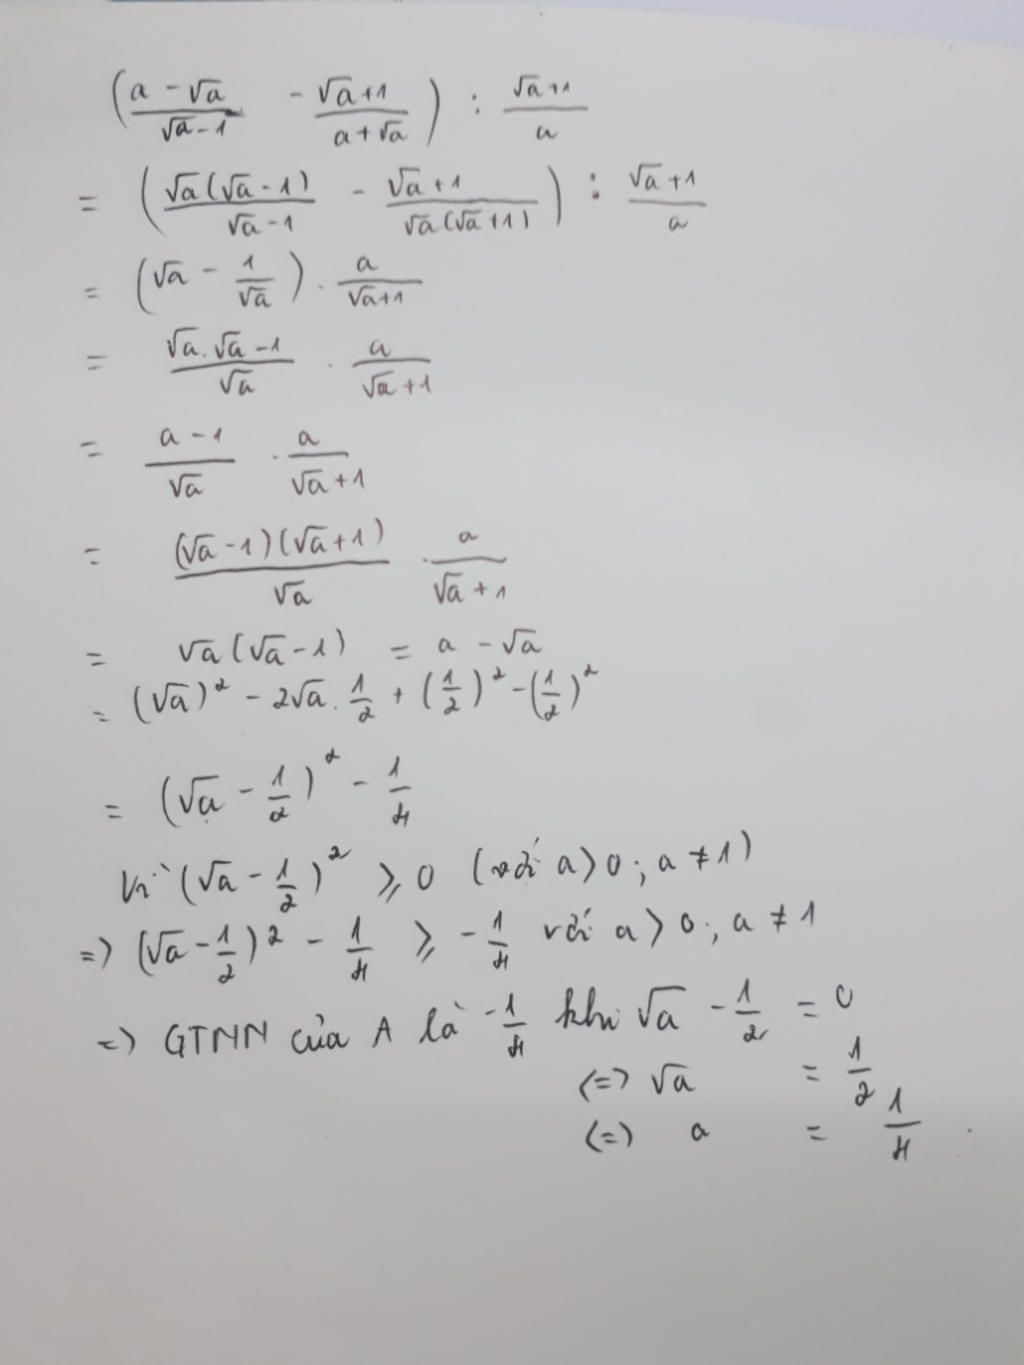 (a - √a / √a - 1 - √a + 1 / a + √a) : √a + 1 / a
= (√a(√a - 1) / √a - 1 - √a + 1 / √a(√a + 1)) : √a + 1 / a
= (√a - 1/√a) . a / √a + 1
= √a.√a - 1 / √a . a / √a + 1
= a - 1 / √a . a / √a + 1
= (√a - 1)(√a + 1) / √a . a / √a + 1
= √a(√a - 1) = a - √a
= (√a)² - 2√a . 1/2 + (1/2)² - (1/2)²
= (√a - 1/2)² - 1/4
Vì (√a - 1/2)² ≥ 0 (với a > 0; a ≠ 1)
=> (√a - 1/2)² - 1/4 ≥ -1/4 với a > 0; a ≠ 1
=> GTNN của A là -1/4 khi √a - 1/2 = 0
<=> √a = 1/2
<=> a = 1/4